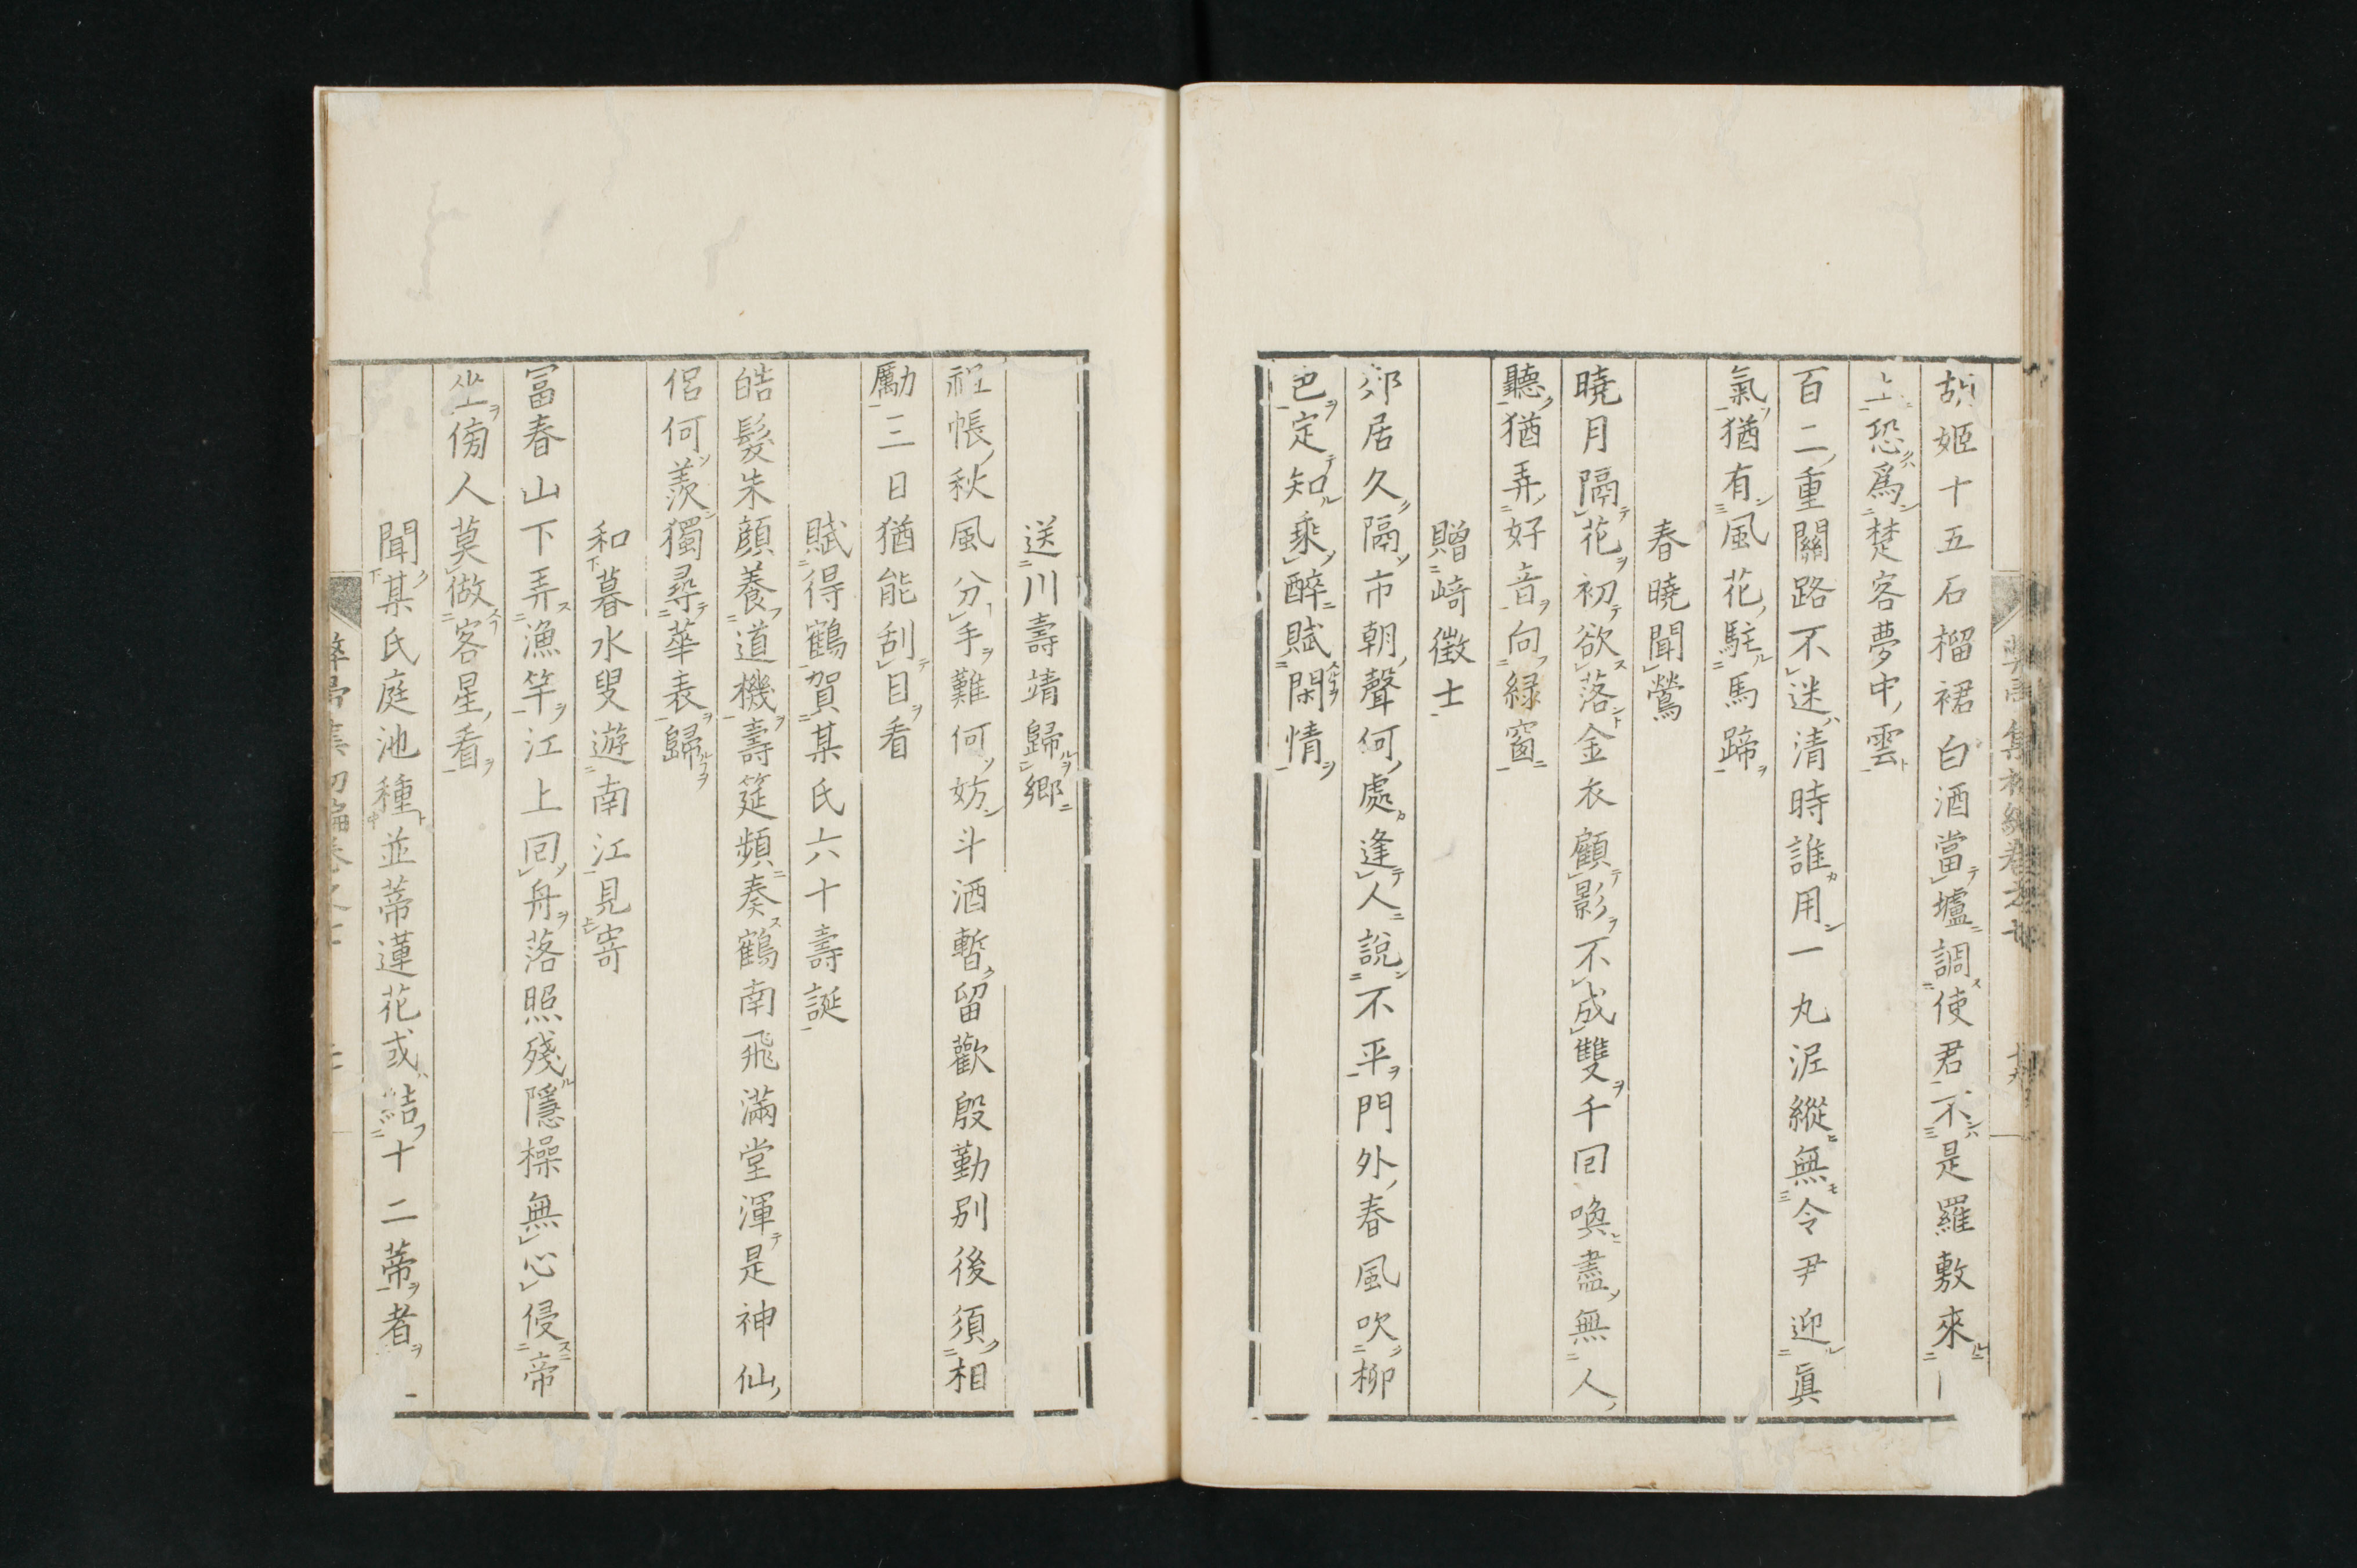 胡姬十五石榴裙白酒當壚調使君不是羅敷來
上恐爲楚客夢中雲
百二重關路不迷清時誰用一丸泥縱無令尹迎眞
氣猶有風花駐馬蹄
春曉聞鶯
曉月隔花初欲落金衣顧影不成雙千回喚盡無人
聽猶弄好音向綠窗
贈崎徵士
郊居久隔市朝聲何處逢人説不平門外春風吹柳
色定知乘醉賦閑情
送川壽靖歸鄉
祖帳秋風分手難何妨斗酒暫留歡殷勤別後須相
勵三日猶能刮目看
賦得鶴賀某氏六十壽誕
皓髮朱顏養道機壽筵頻奏鶴南飛滿堂渾是神仙
侶何羨獨尋華表歸
和暮水叟遊南江見寄
富春山下弄漁竿江上回舟落照殘隱操無心侵帝
坐傍人莫做客星看
聞某氏庭池種並蒂蓮花或結十二蒂者